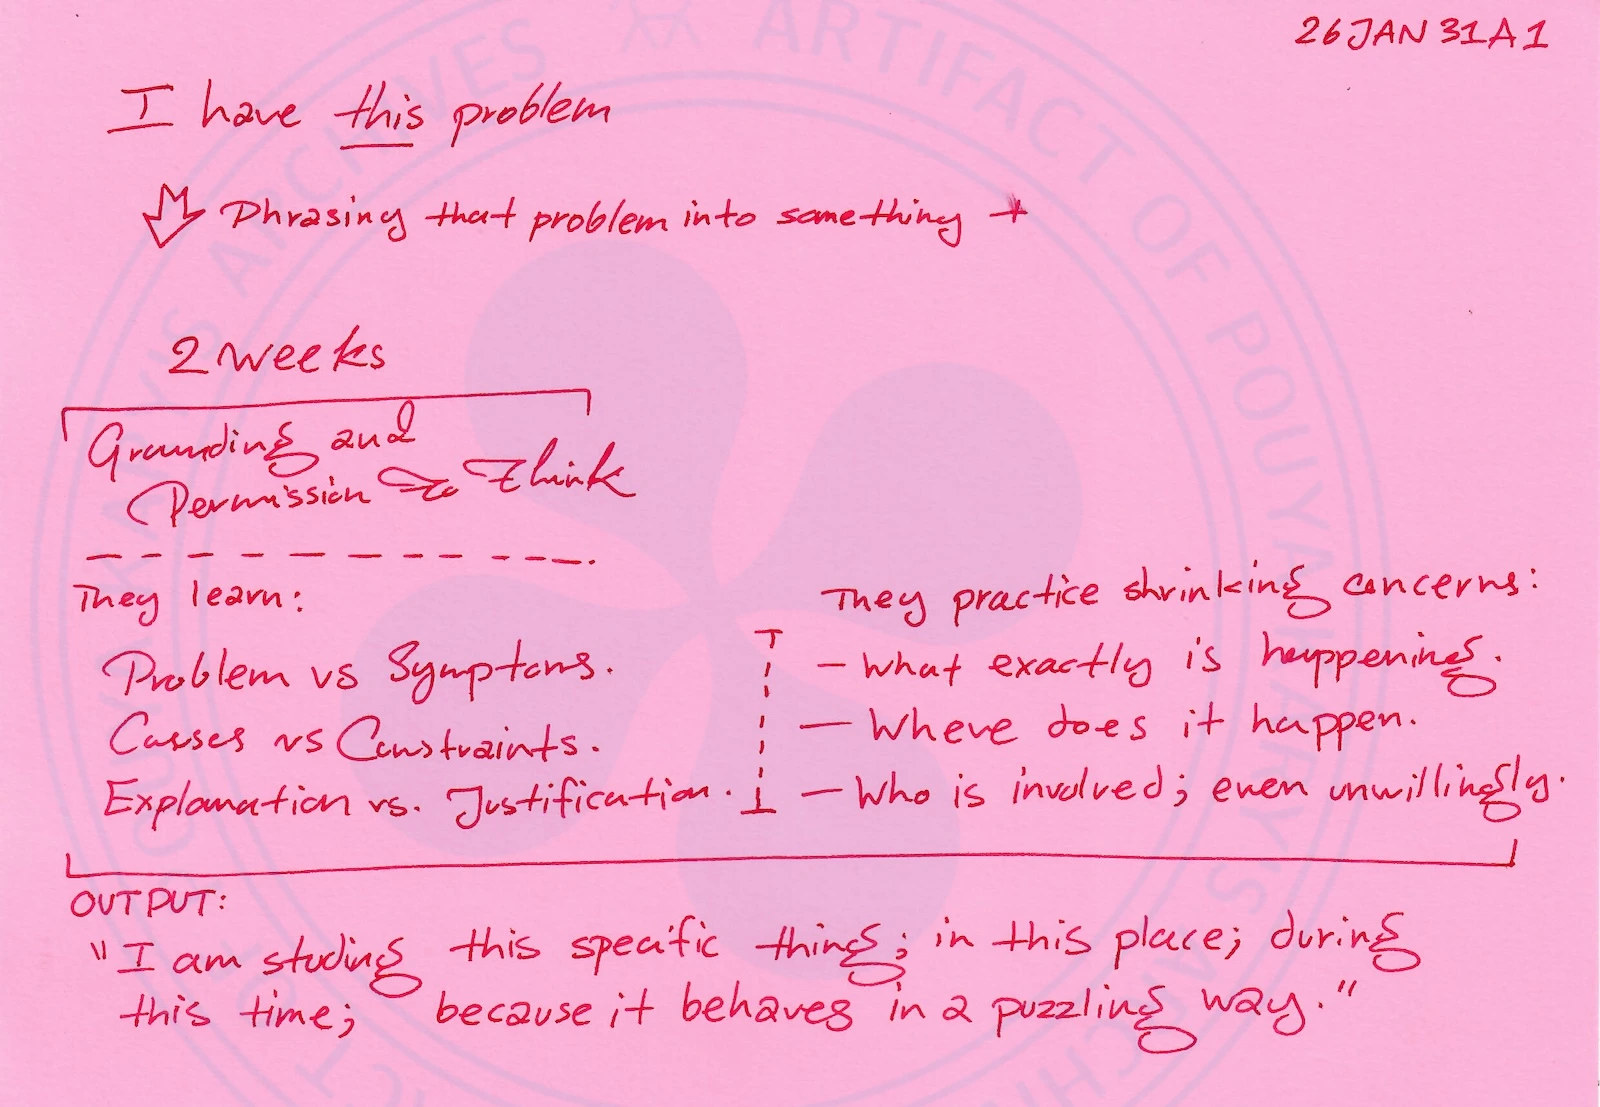 26JAN31A1
I have this problem
Phrasing that problem into something +
2 weeks
Grounding and
Permission to think
They learn:
Problem vs Symptoms.
Causes vs Constraints.
Explanation vs. Justification.
They practice shrinking concerns:
- What exactly is happening.
- Where does it happen.
- Who is involved; even unwillingly.
OUTPUT:
"I am studing this specific thing; in this place; during
this time; because it behaves in a puzzling way."
ARTIFACT OF POUYA KARY'S ARCHIVES